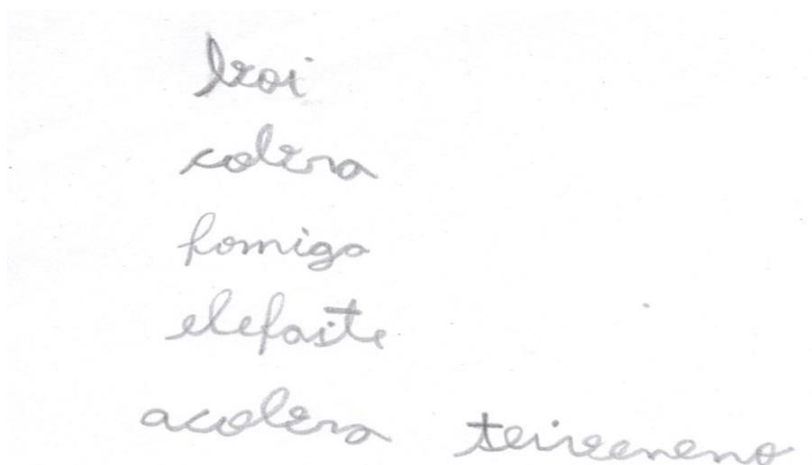 boi
cobra
fomiga
elefaite
a cobra tei veneno